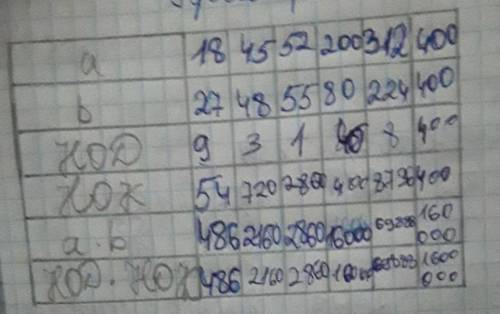 a 18 45 52 200 312 400
b 27 48 55 80 224 400
НОД 9 3 1 40 8 400
НОК 54 720 2860 400 8736 400
a·b 486 2160 2860 16000 160 000
НОД·НОК 486 2160 2860 1600 000